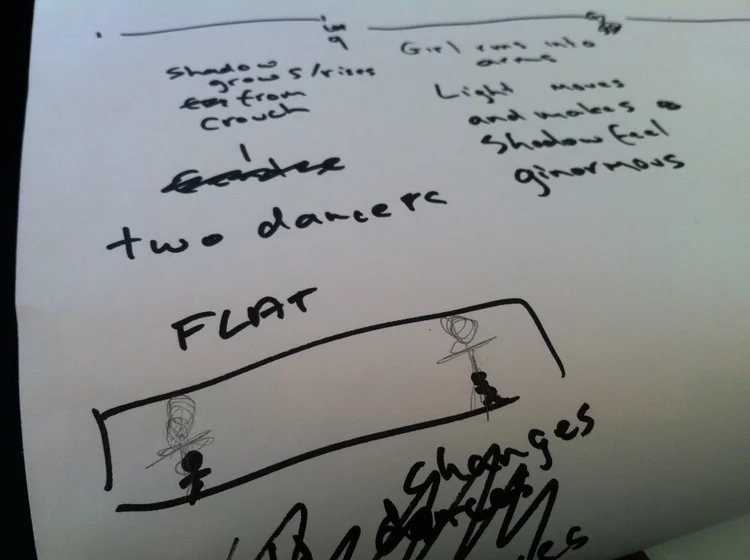 shadow
grows/rises
from
crouch
Girl runs into
arms
Light moves
and makes
shadow feel
ginormous
two dancers
FLAT
changes